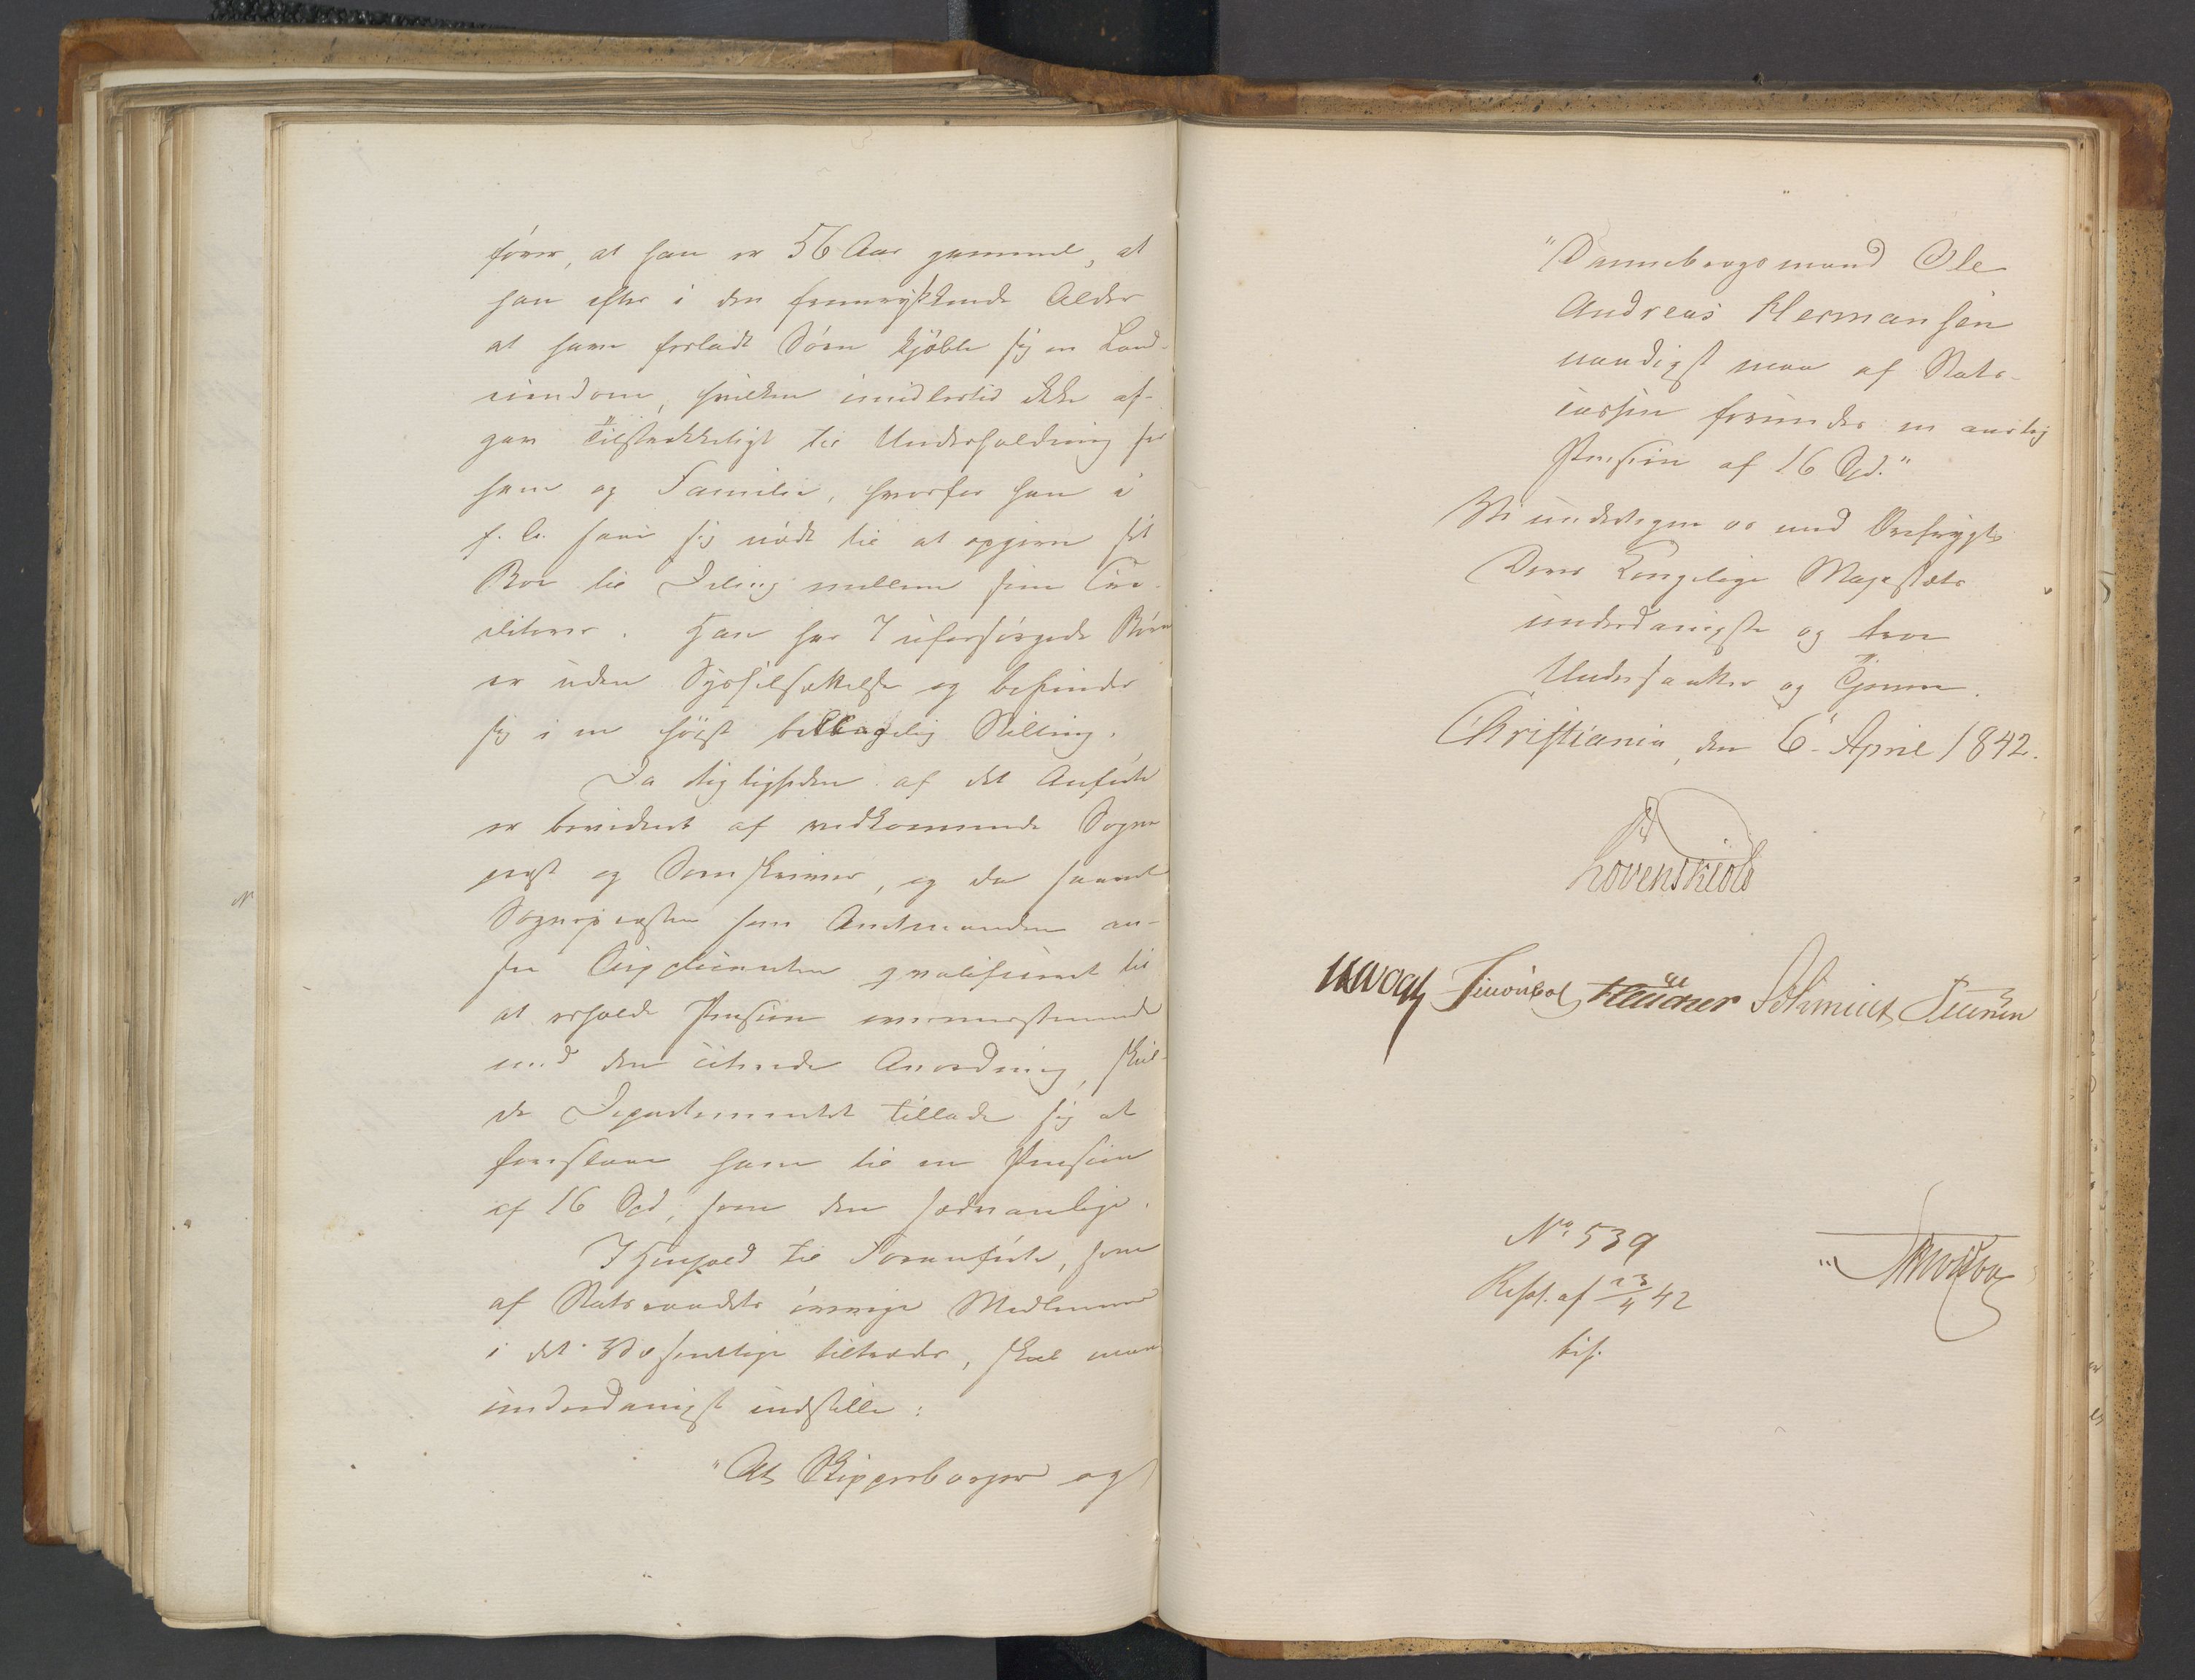 fører, at han er 56 Aar gammel, at
han efter i den fremrykkende Alder
at have forladt Søen kjøbte sig en Land-
eiendom, hvilken imidlertid ikke af-
gav tilstrækkeligt til Underholdning for
ham og Familie, hvorfor han i
f. A. saae sig nødt til at opgive sit
Boe til Deling mellem sine Cre-
ditorer. Han har 7 uforsørgede Børn
er uden Sysselsættelse og befinder
sig i en høist beklagelig Stilling.
Da Rigtigheden af det Anførte
er bevidnet af vedkommende Sogne
præst og Sorenskriver, og da saavel
Sognepræsten som Amtmanden an-
see Supplicanten qvalificeret til
at erholde Pension overeensstemmende
med den citerede Anordning, skul-
de Departementet tillade sig at
foreslaae ham til en Pension
af 16 Spd, som den sædvanlige.
I Henhold til Foranførte, som
af Statsraadets øvrige Medlemmer
i det Væsentlige tiltrædes, skal man
underdanigst indstille:
"At Skipperborger og
"Dannebrogsmand Ole
Andreas Hermansen
naadigst maa af Stats-
cassen forundes en aarlig
Pension af 16 Spd."
Vi undertegne os med Ærefrygt
Deres Kongelige Majestæts
underdanigste og troe
Undersaatter og Tjenere.
Christiania, den 6 April 1842.
Løvenskiold
Vogt Schmidt
No 539
Resol. af 23/4 42
bif.